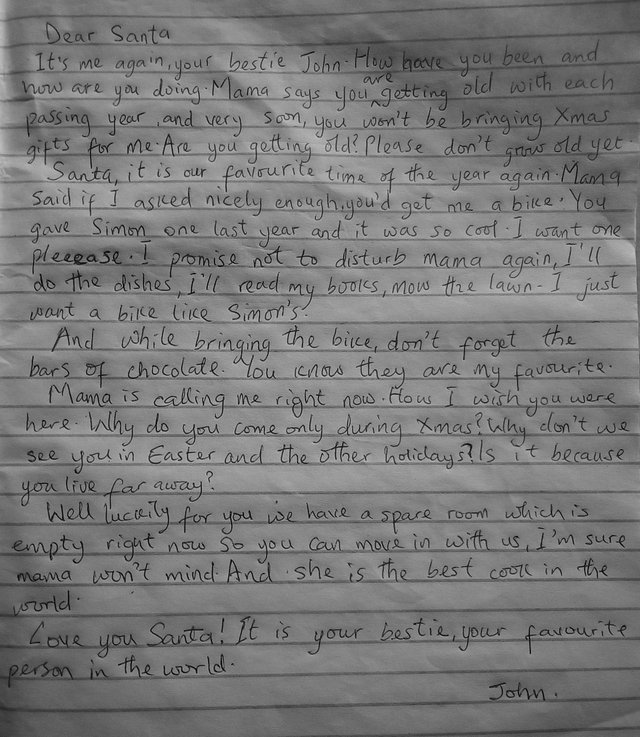 Dear Santa
It's me again, your bestie John. How have you been and
how are you doing. Mama says you are getting old with each
passing year, and very soon, you won't be bringing Xmas
gifts for me. Are you getting old? Please don't grow old yet.
Santa, it is our favourite time of the year again. Mama
said if I asked nicely enough, you'd get me a bike. You
gave Simon one last year and it was so cool. I want one
pleeease. I promise not to disturb mama again, I'll
do the dishes, I'll read my books, mow the lawn- I just
want a bike like Simon's.
And while bringing the bike, don't forget the
bars of chocolate. You know they are my favourite.
Mama is calling me right now. How I wish you were
here. Why do you come only during Xmas? Why don't we
see you in Easter and the other holidays? Is it because
you live far away?
Well luckily for you we have a spare room which is
empty right now so you can move in with us, I'm sure
mama won't mind. And she is the best cook in the
world.
Love you Santa! It is your bestie, your favourite
person in the world.
John.